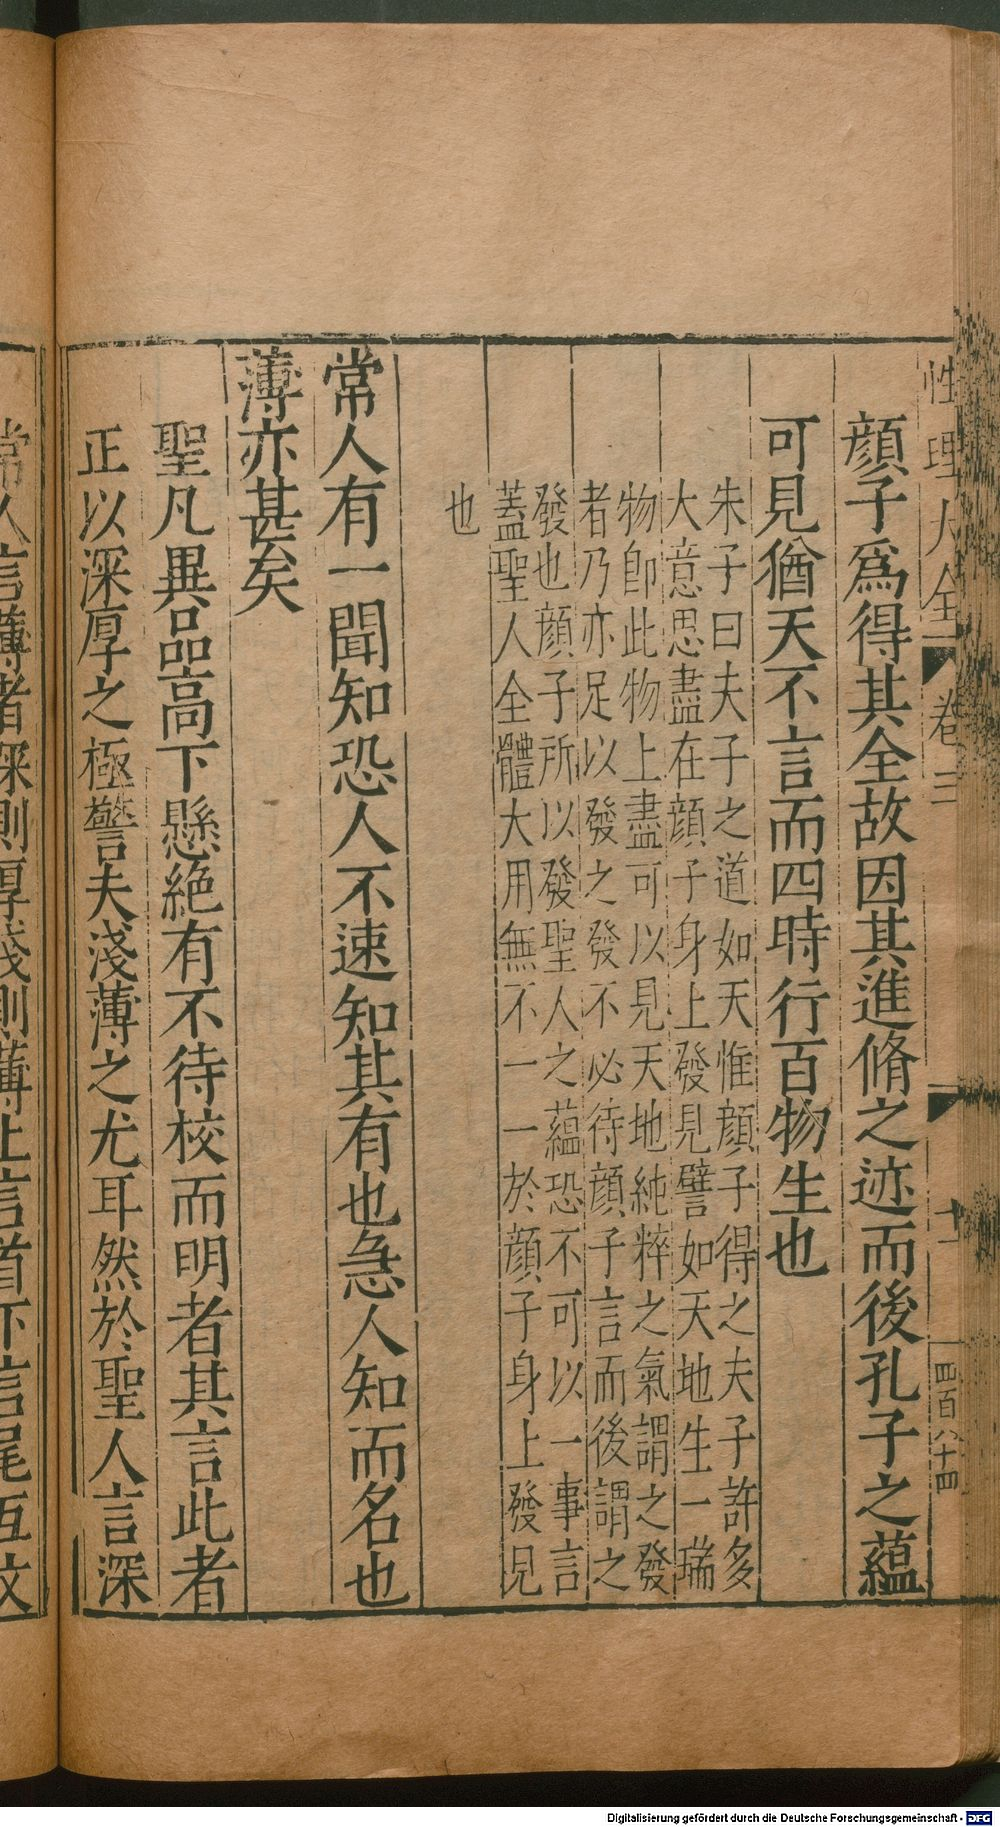 性理大全 卷三 十一 四百八十四
顔子爲得其全故因其進脩之迹而後孔子之蘊
可見猶天不言而四時行百物生也
朱子曰夫子之道如天惟顔子得之夫子許多
大意思盡在顔子身上發見譬如天地生一瑞
物卽此物上盡可以見天地純粹之氣謂之發
者乃亦足以發之發不必待顔子言而後謂之
發也顔子所以發聖人之蘊恐不可以一事言
蓋聖人全體大用無不一一於顔子身上發見
也
常人有一聞知恐人不速知其有也急人知而名也
薄亦甚矣
聖凡異品高下懸絶有不待校而明者其言此者
正以深厚之極警夫淺薄之尤耳然於聖人言深
常人言薄者深則厚淺則薄上言首下言尾互文
Digitalisierung gefördert durch die Deutsche Forschungsgemeinschaft - DFG